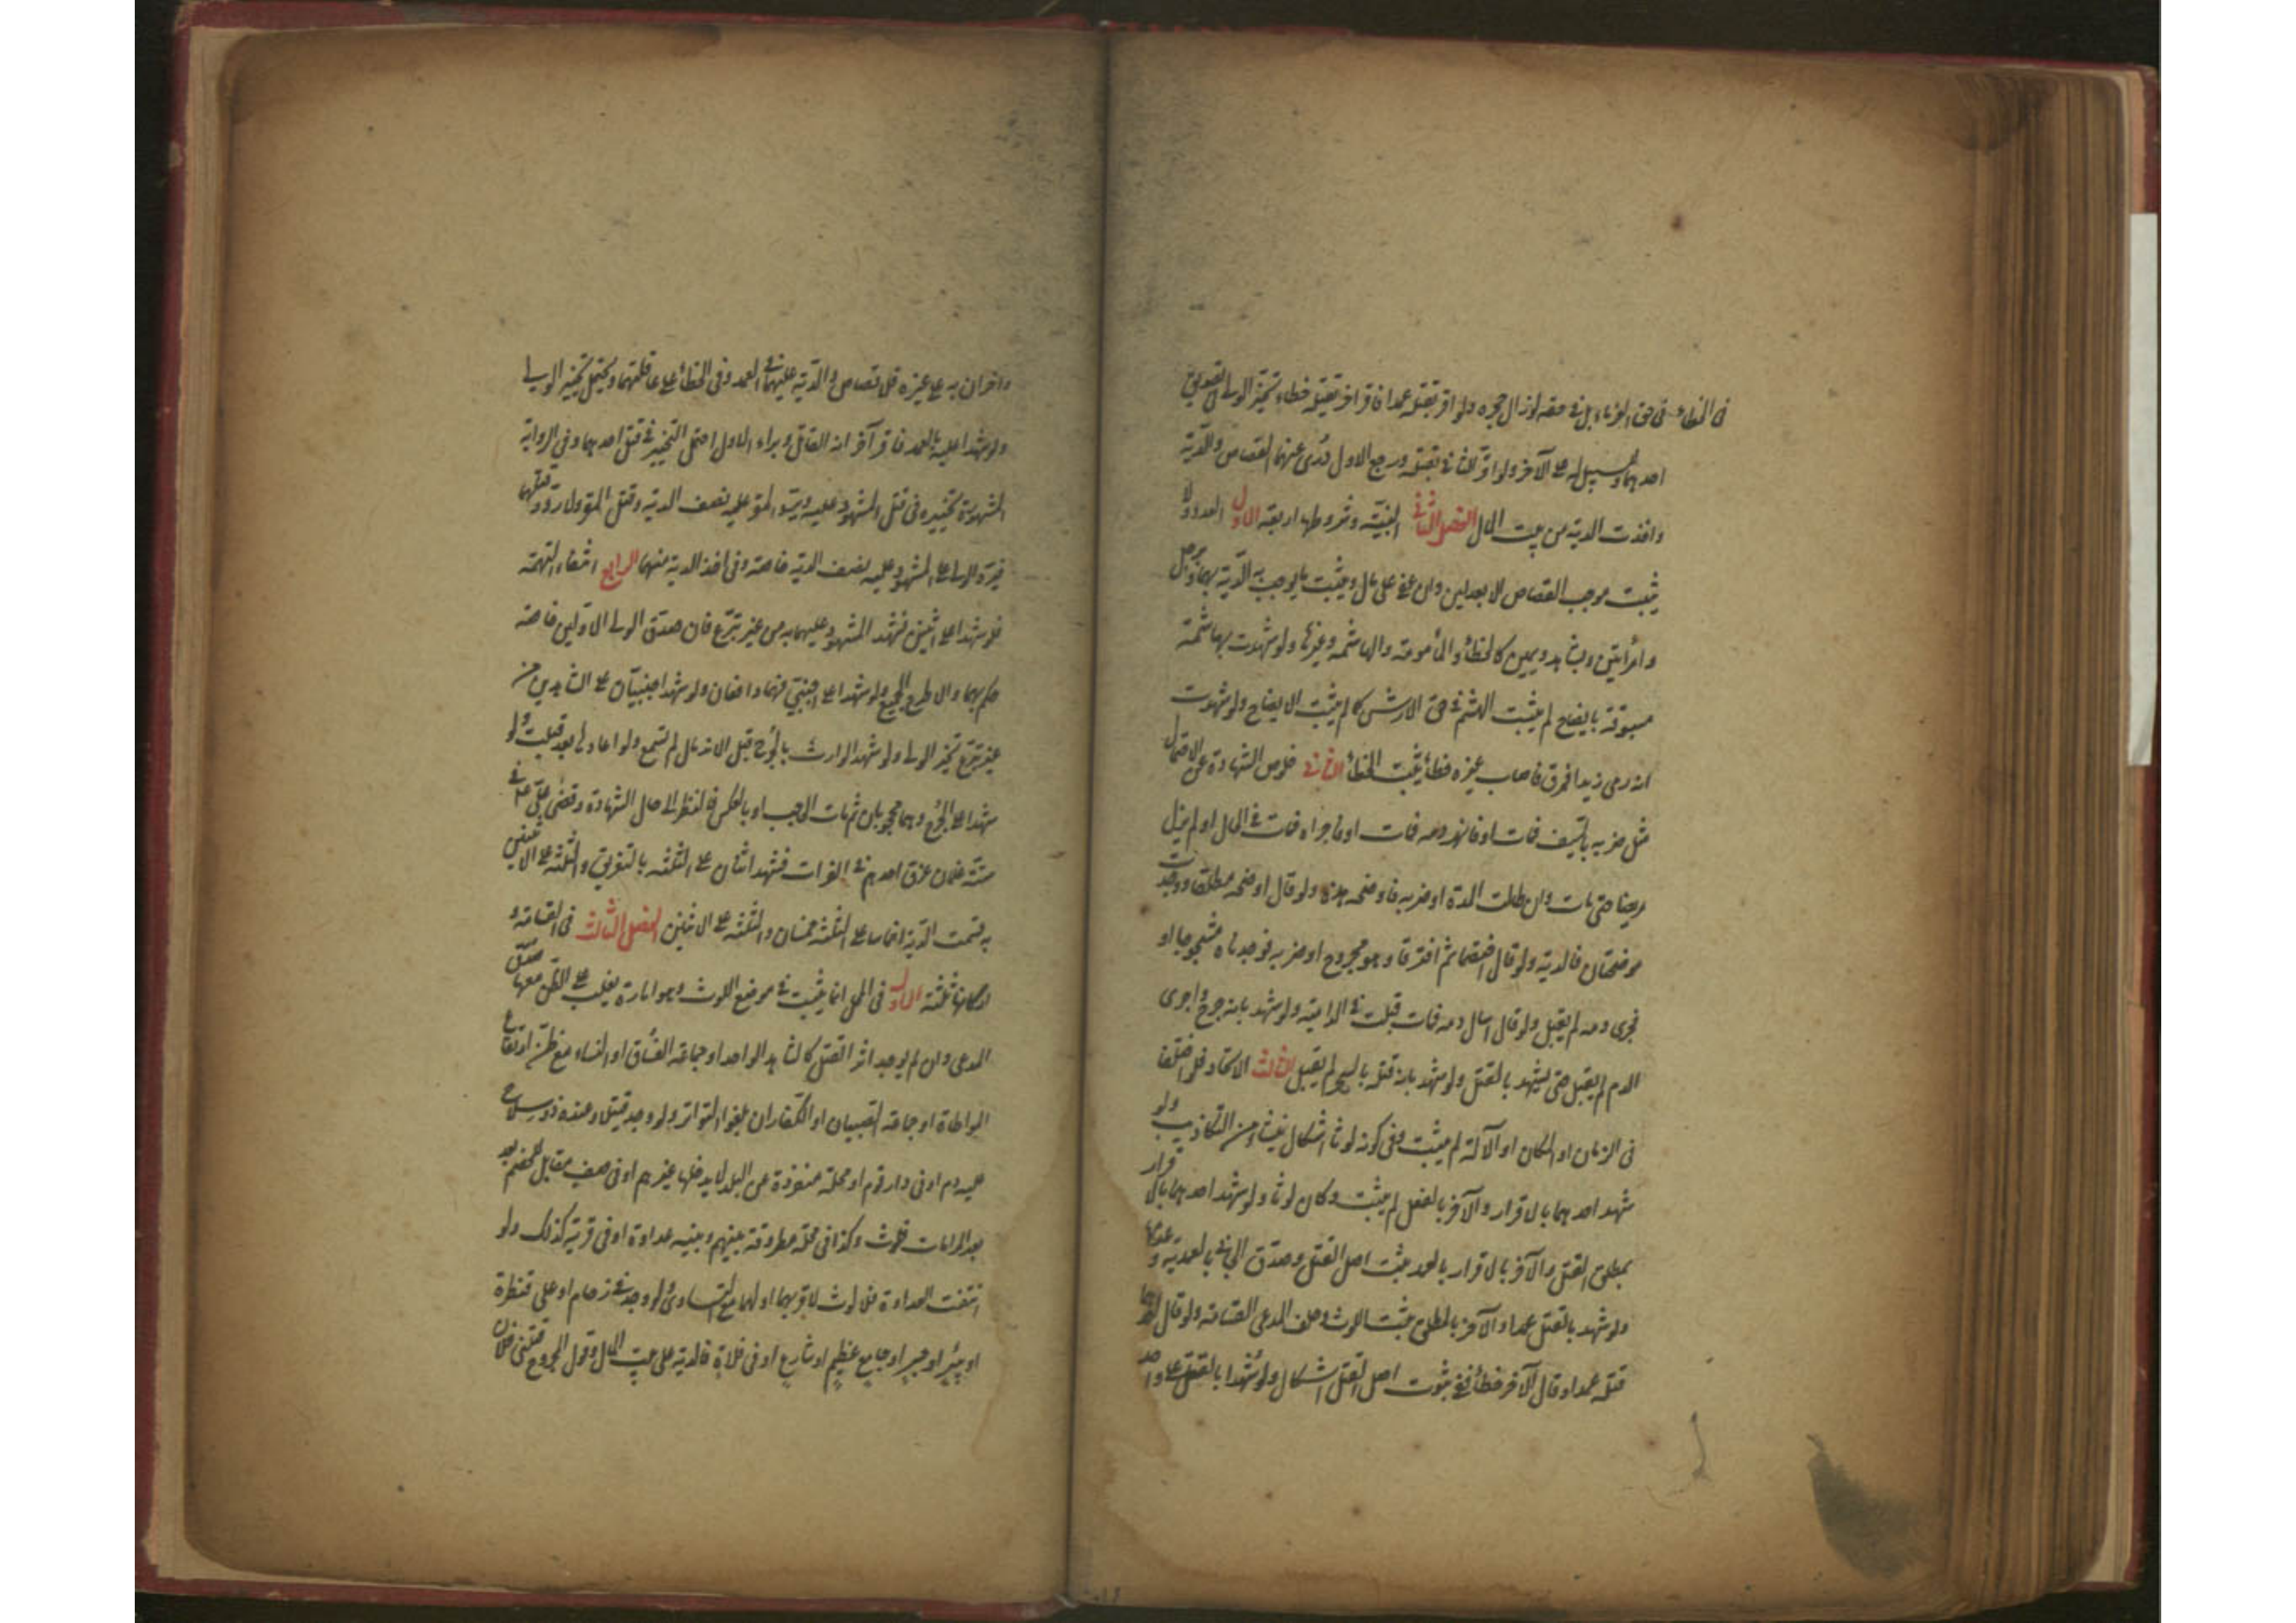 في الخطاء في حق الغرماء بل في حقه لو زال حجره ولو اقر بقتله عمدا فاقر اخر بقتله خطاء تخير الولي في تصديق
احدهما ولا سبيل له على الآخر ولو اقر الثاني بقتله ورجع الاول درئ عنهما القصاص والدية
واخذت الدية من بيت المال الفصل الثاني البينة وشروطها اربعة الاول العدد ولا
يثبت موجب القصاص الا بعدلين وان عفى على مال ويثبت ما يوجب به الدية بهما وبرجل
وامرأتين وبشاهد ويمين كالخطأ والمأمومة والهاشمة وغيرها ولو شهدت بهاشمة
مسبوقة بايضاح لم يثبت الهشم في حق الارش كما لم يثبت الايضاح ولو شهدت
انه رمى زيدا فمرق فاصاب غيره خطأ يثبت الخطأ الثاني خلوص الشهادة عن الاحتمال
مثل ضربه بالسيف فمات او فانهر دمه فمات او فاجراه فمات في الحال او لم يزل
مريضا حتى مات وان طالت المدة او ضربه فاوضحه هذه ولو قال اوضحه مطلقا ووجدت
موضحتان فالدية ولو قال اختصما ثم افترقا وهو مجروح او ضربه فوجدناه مشجوجا او
فجرى دمه لم يقبل ولو قال اسال دمه فمات قبلت في الدامية ولو شهد بانه جرح واجرى
الدم لم يقبل حتى يشهد بالقتل ولو شهد بانه قتله بالسحر لم يقبل الثالث الاتحاد فلو اختلفا
في الزمان او المكان او الآلة لم يثبت وفي كونه لوثا اشكال ينشاء من التكاذب ولو
شهد احدهما بالاقرار والآخر بالفعل لم يثبت وكان لوثا ولو شهد احدهما باقرار
بمطلق القتل والآخر بالاقرار بالعمد يثبت اصل القتل وصدق الجاني في العمدية وعدمها
ولو شهد بالقتل عمدا والآخر بالمطلق يثبت اللوث وحلف المدعي القسامة ولو قال احدهما
قتله عمدا وقال الآخر خطأ ففي ثبوت اصل القتل اشكال ولو شهدا بالقتل على واحد
واخران به على غيره فلا قصاص والدية عليهما في العمد وفي الخطأ على عاقلتهما ويحتمل تخيير الولي
ولو شهدا عليه بالعمد فاقر آخر انه القاتل وبراء الاول احتمل التخيير في قتل احدهما وفي الرواية
المشهورة تخييره في قتل المشهود عليه ويرد المقر عليه نصف الدية وقتل المقر ولا رد وقتلهما
فيرد الولي على المشهود عليه نصف الدية خاصة وفي اخذ الدية منهما الرابع انتفاء التهمة
فلو شهدا على اثنين فشهد المشهود عليهما به من غير تبرع فان صدق الولي الاولين خاصة
حكم بهما والا طرح الجميع ولو شهدا على اجنبي فهما دافعان ولو شهد اجنبيان على الشاهدين من
غير تبرع تخير الولي ولو شهد الوارث بالجرح قبل الاندمال لم تسمع ولو اعادها بعد قبلت ولو
شهدا على الجرح وهما محجوبان ثم مات الحاجب او بالعكس فالنظر الى حال الشهادة وقضى علي ع في
ستة غلمان غرق احدهم في الفرات فشهد اثنان على الثلثة بالتغريق والثلثة على الاثنين
به قسمت الدية اخماسا على الثلثة خمسان والثلثة على الاثنين الفصل الثالث في القسامة و
اركانها ثلثة الاول في المحل انما يثبت في موضع اللوث وهو امارة يغلب على الظن معها صدق
المدعي وان لم يوجد اثر القتل كالشاهد الواحد او جماعة الفساق او النساء مع ظن ارتفاع
المواطاة او جماعة الصبيان او الكفار ان بلغوا التواتر ولو وجد قتيل وعنده ذو سلاح
عليه دم او في دار قوم او محلة منفردة عن البلد لا يدخلها غيرهم او في صف مقابل للخصم بعد
بعد المرامات فلوث وكذا في محلة مطروقة بينهم وبينه عداوة او في قرية كذلك ولو
انتفت العداوة فلا لوث لاقربهما او لهما مع التساوي ولو وجد في زحام او على قنطرة
او بئر او جسر او جامع عظيم او شارع او في فلاة فالدية على بيت المال وقول المجروح قتلني فلان